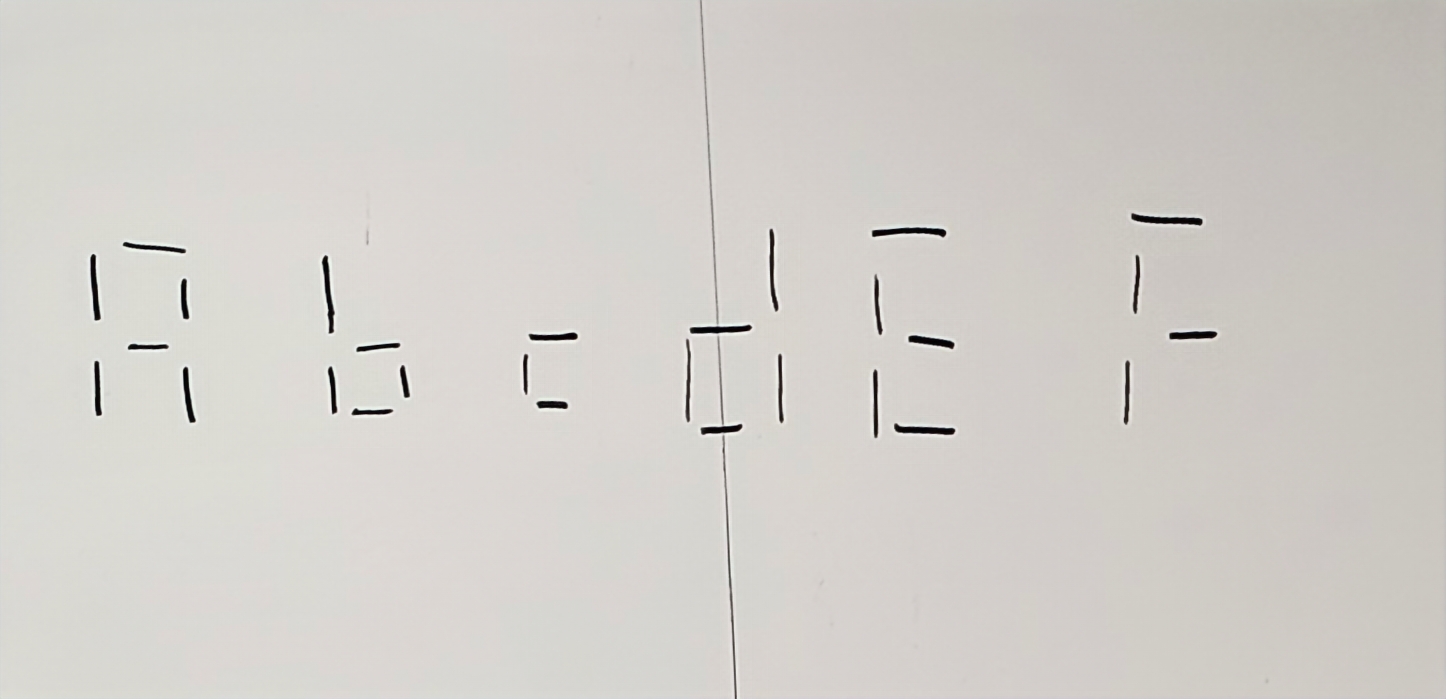 A b c d E F